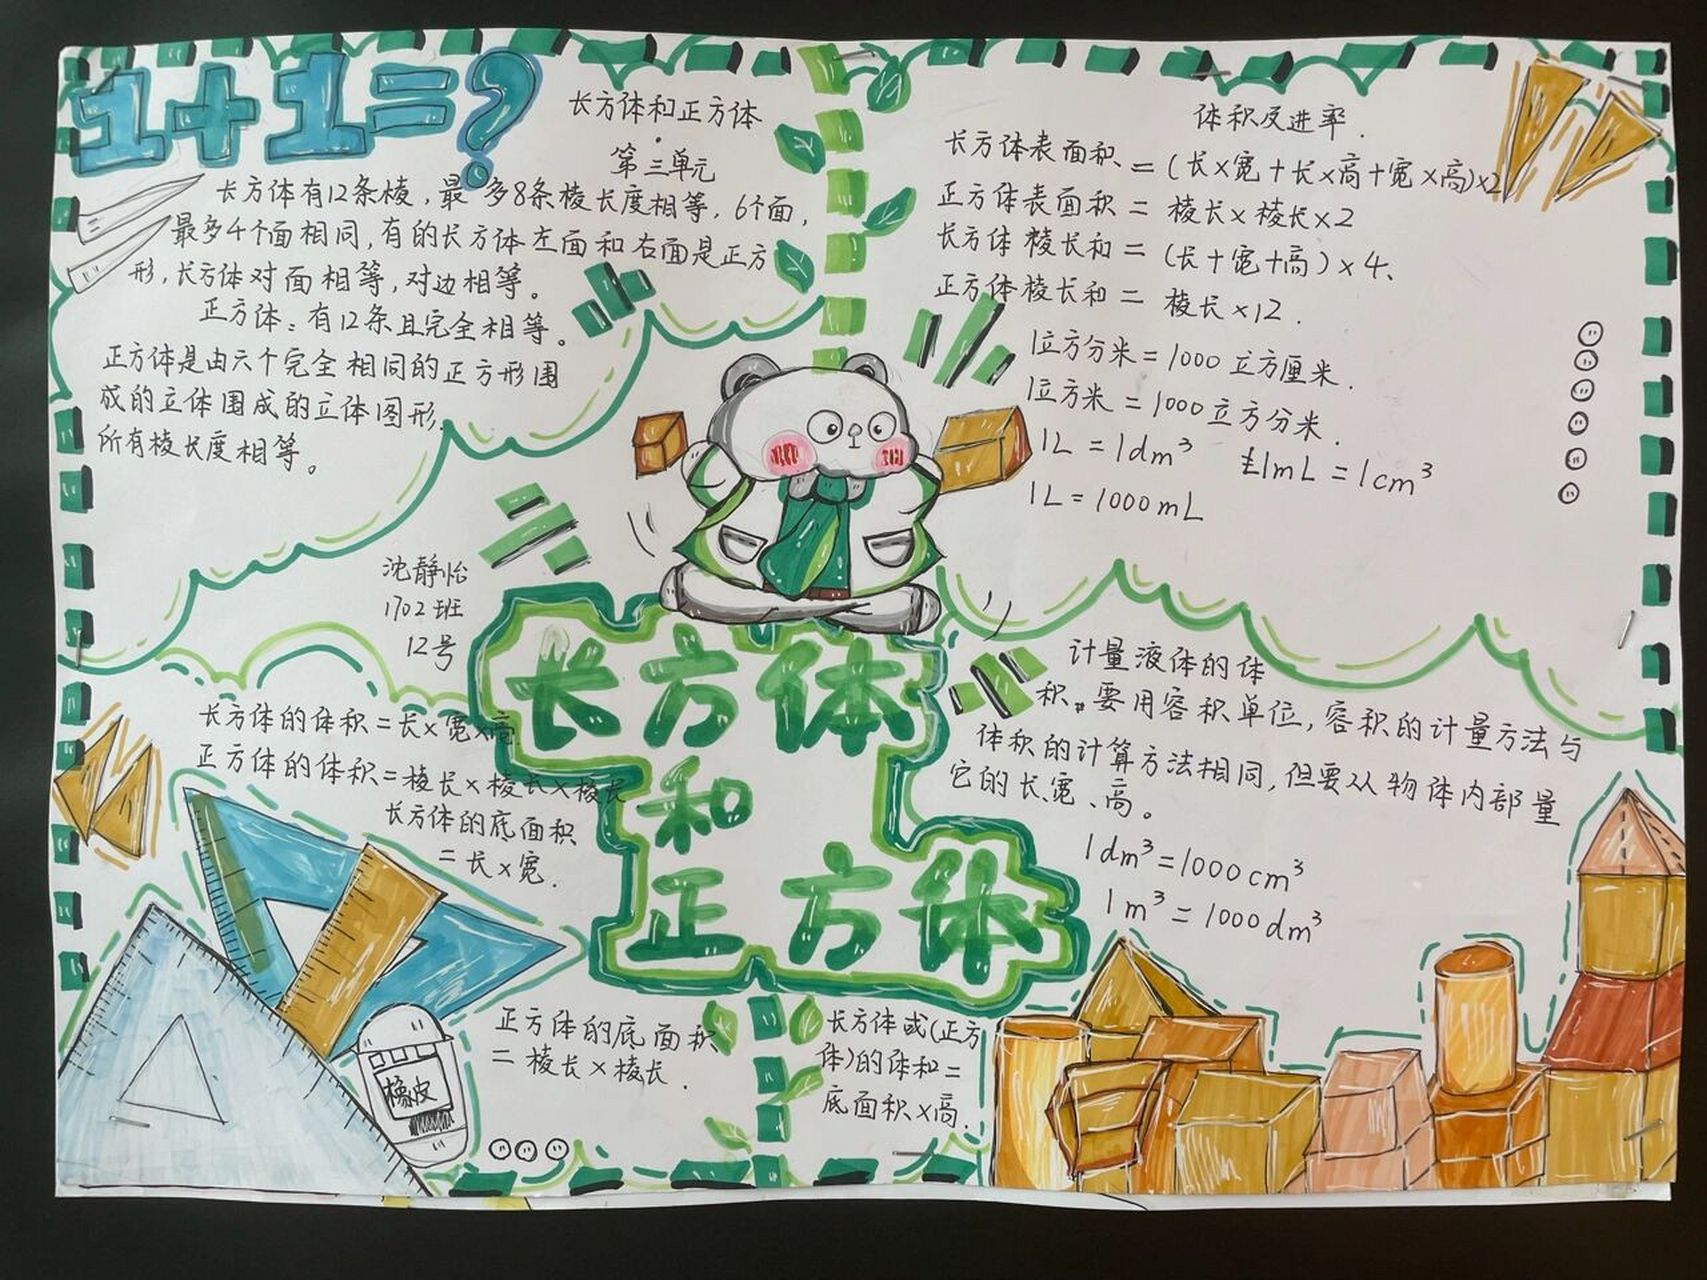 1+1=?
长方体和正方体
第三单元
长方体有12条棱,最多8条棱长度相等,6个面,
最多4个面相同,有的长方体左面和右面是正方
形,长方体对面相等,对边相等。
正方体:有12条且完全相等。
正方体是由六个完全相同的正方形围
成的立体围成的立体图形
所有棱长度相等。
沈静怡
1702班
12号
体积及进率.
长方体表面积=(长×宽+长×高+宽×高)×2
正方体表面积=棱长×棱长×2
长方体棱长和=(长+宽+高)×4、
正方体棱长和=棱长×12.
1立方分米=1000立方厘米.
1立方米=1000立方分米.
1L=1dm³ 1mL=1cm³
1L=1000mL
长方体
和
正方体
长方体的体积=长×宽×高
正方体的体积=棱长×棱长×棱长
长方体的底面积
=长×宽.
橡皮
正方体的底面积
=棱长×棱长.
长方体或(正方
体)的体和=
底面积×高.
计量液体的体
积,要用容积单位,容积的计量方法与
体积的计算方法相同,但要从物体内部量
它的长、宽、高。
1dm³=1000cm³
1m³=1000dm³